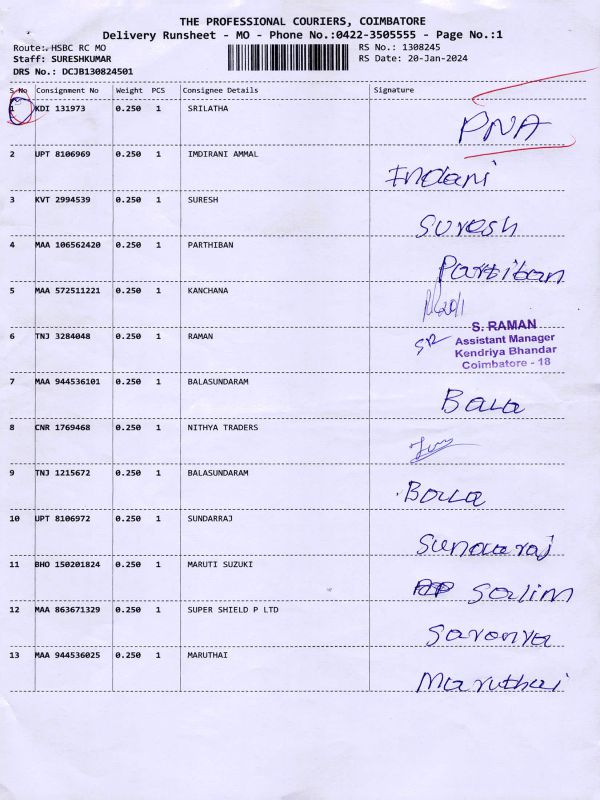 THE PROFESSIONAL COURIERS, COIMBATORE
Delivery Runsheet - MO - Phone No.:0422-3505555 - Page No.:1
Route: HSBC RC MO RS No.: 1308245
Staff: SURESHKUMAR RS Date: 20-Jan-2024
DRS No.: DCJB130824501
S.No Consignment No Weight PCS Consignee Details Signature
1 KDI 131973 0.250 1 SRILATHA PNA
2 UPT 8106969 0.250 1 IMDIRANI AMMAL Indani
3 KVT 2994539 0.250 1 SURESH Suresh
4 MAA 106562420 0.250 1 PARTHIBAN Partiban
5 MAA 572511221 0.250 1 KANCHANA
6 TNJ 3284048 0.250 1 RAMAN SR
S. RAMAN
Assistant Manager
Kendriya Bhandar
Coimbatore - 18
7 MAA 944536101 0.250 1 BALASUNDARAM Bala
8 CNR 1769468 0.250 1 NITHYA TRADERS
9 TNJ 1215672 0.250 1 BALASUNDARAM Balla
10 UPT 8106972 0.250 1 SUNDARRAJ Sundaraj
11 BHO 150201824 0.250 1 MARUTI SUZUKI Salim
12 MAA 863671329 0.250 1 SUPER SHIELD P LTD Saranya
13 MAA 944536025 0.250 1 MARUTHAI Maruthai